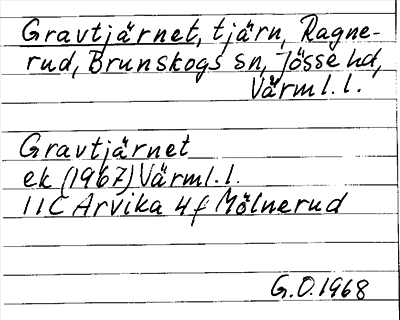 Gravtjärnet, tjärn, Ragne-
rud, Brunskogs sn, Jösse hd,
Värml. l.
Gravtjärnet
ek (1967) Värml. l.
11C Arvika 4f Mölnerud
G.O. 1968